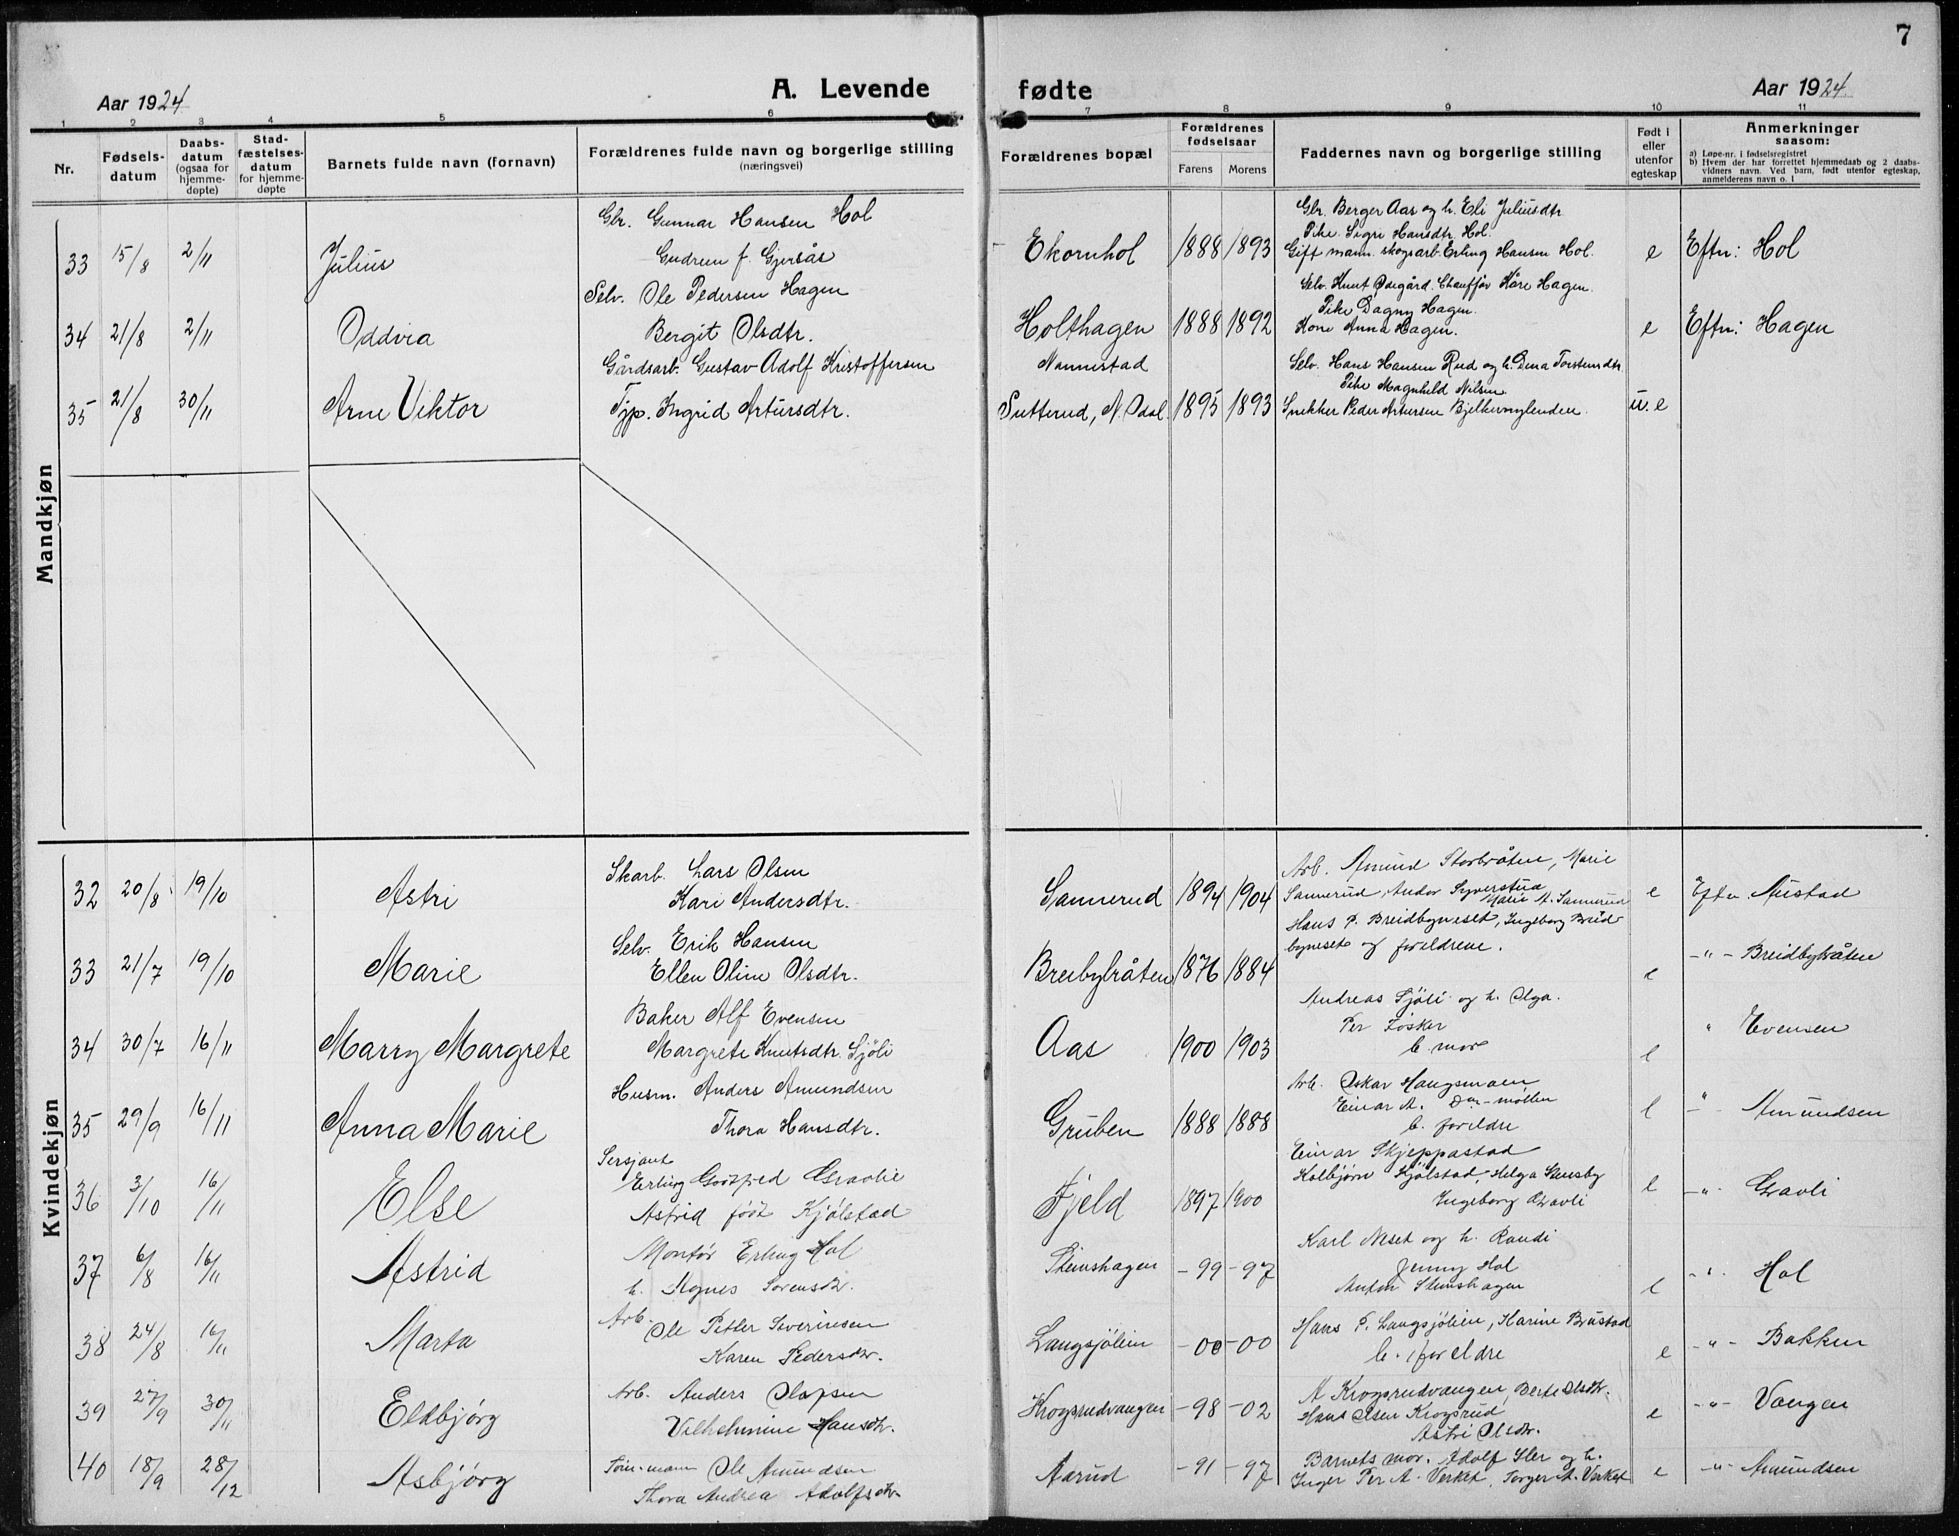 7
Aar 1924
A. Levende
fødte
Aar 1924
1 2 3 4 5 6 7 8 9 10 11
Nr.
Fødsels-
datum
Daabs-
datum
(ogsaa for
hjemme-
døpte)
Stad-
fæstelses-
datum
for hjemme-
døpte
Barnets fulde navn (fornavn)
Forældrenes fulde navn og borgerlige stilling
(næringsvei)
Forældrenes bopæl
Forældrenes
fødselsaar
Farens Morens
Faddernes navn og borgerlige stilling
Født i
eller
utenfor
egteskap
Anmerkninger
saasom:
a) Løpe-nr. i fødselsregistret
b) Hvem der har forrettet hjemmedaab og 2 daabs-
vidners navn. Ved barn, født utenfor egteskap,
anmelderens navn o. l
Mandkjøn
33 15/8 2/11 Julius
Gbr. Gunnar Hansen Hol
Gudrun f. Gjersås
Ekornhol 1888 1893
Gbr. Berger Aas og h. Eli Juliusdtr.
Pike. Sigri Hansdtr. Hol.
Gift mann. skogsarb. Erling Hansen Hol.
e Eftn: Hol
34 21/8 2/11 Oddvia
Selv. Ole Pedersen Hagen
Bergit Olsdtr.
Holthagen 1888 1892
Selv. Knut Ødegård. Chauffør Kåre Hagen.
Pike Dagny Hagen.
Kone Anna Hagen.
e Eftn: Hagen
35 21/8 30/11 Arne Viktor
Gårdsarb. Gustav Adolf Kristoffersen
Tjp. Ingrid Artursdtr.
Nannestad
Sutterud, N. Odal. 1895 1893
Selv. Hans Hansen Rud og h. Dina Torstensdtr
Pike Magnhild Nilsen
Snekker Peder Artursen
u. e
Kvindekjøn
32 20/8 19/10 Astri
Skarb. Lars Olsen
Kari Andersdtr.
Sannerud 1894 1904
Arb. Amund Storbråten, Marie
Sannerud, Andor Syverstua
Marie A. Sannerud
e Eftn. Austad
33 21/7 19/10 Marie
Selv. Erik Hansen
Ellen Oline Olsdtr.
Breibybråten 1876 1884
Hans P. Breidbyneset, Ingeborg Breid-
byneset og foreldrene.
e -"- Breidbybråten
34 30/7 16/11 Marry Margrete
Baker Alf Evensen
Margrete Knutsdtr. Sjöli
Aas 1900 1903
Andreas Sjöli og h. Olga.
Per Fosker
b. mor
e " Evensen
35 29/9 16/11 Anna Marie
Husm. Anders Amundsen
Thora Hansdtr.
Gruben 1888 1888
Arb. Oskar Haugsmoen
Einar A.
b. foreldre
e -"- Amundsen
36 3/10 16/11 Else
Sersjant
Erling Gotfred Gravlie
Astrid født Kjølstad
Fjeld 1897 1900
Einar Skjeppastad
Kolbjørn Kjølstad, Helga Stensby
Ingeborg Gravli
e -"- Gravli
37 6/8 16/11 Astrid
Montør Erling Hol
h. Agnes Sørensdtr.
Steinshagen -99 -97
Karl Neset og h. Randi
Jenny Hol
Anton Steinshagen
e -"- Hol
38 24/8 16/11 Marta
Arb.
Ole Petter Severinsen
Karen Pedersdtr.
Langsjölien -00 -00
Hans P. Langsjölien, Karine Brustad
b. foreldre
e -"- Bakken
39 27/9 30/11 Eldbjørg
Arb. Anders Olafsen
Vilhelmine Hansdtr.
Krogsrudvangen -98 -02
A Krogsrudvangen, Berte Olsdtr.
Hans Olsen Krogsrud
Astri Olsdtr.
e -"- Vangen
40 18/9 28/12 Asbjørg
Ole Amundsen
Thora Andrea Adolfsdtr.
Aarud -91 -97
Barnets mor. Adolf Sler og h.
Inger Per A. Verket, Torger A. Verket
e -"- Amundsen